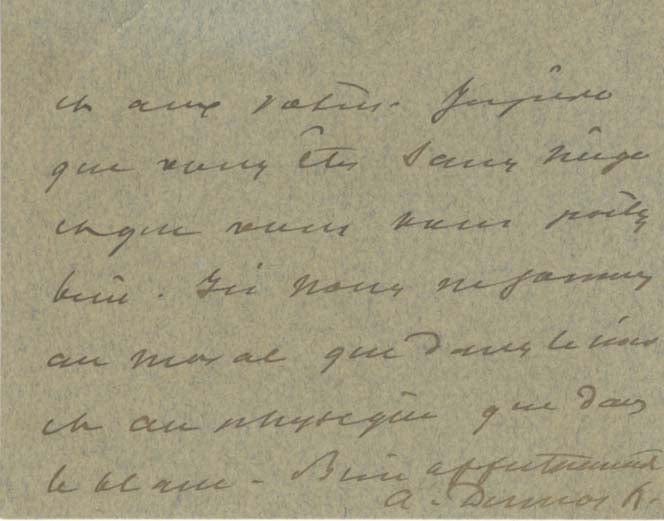 et aux vôtres. J'espère
que vous êtes sans neige
et que vous vous portez
bien. Ici nous ne sommes
au moral que dans le noir
et au physique que dans
le blanc. Bien affectueusement
A. Dumas